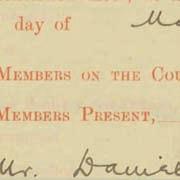 day of
Members on the Cou
Members Present,
Mr. Daniel